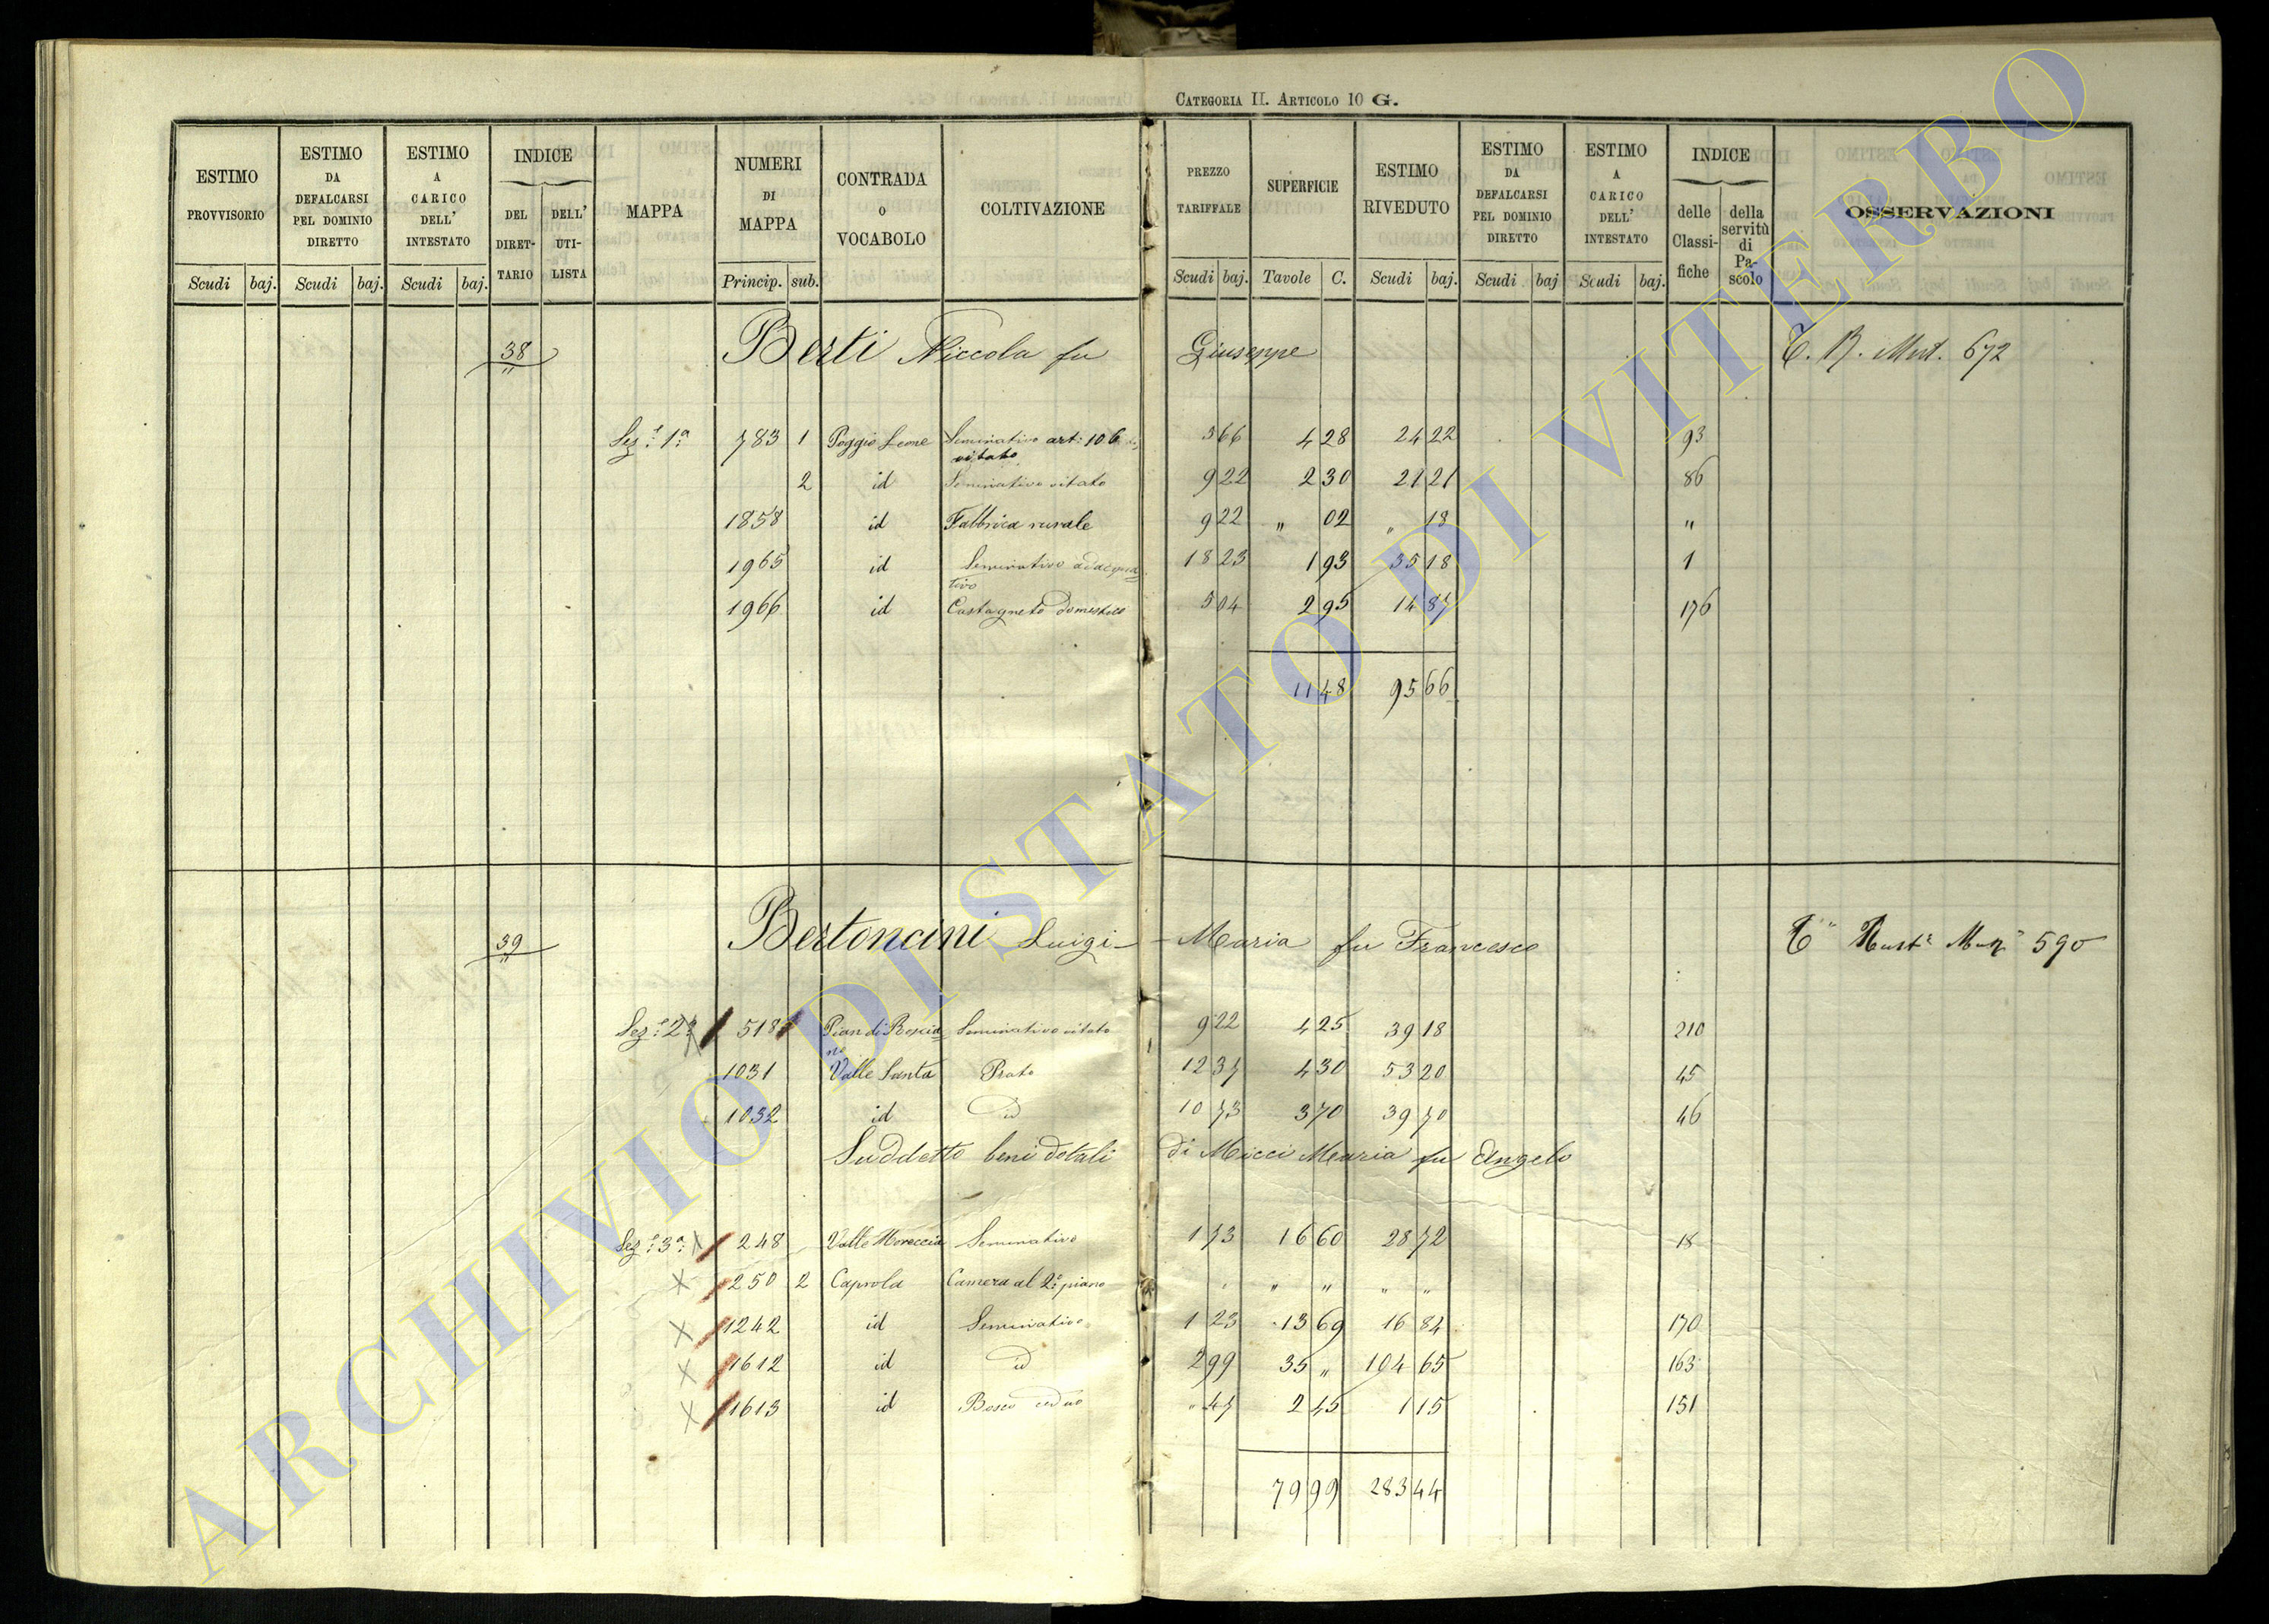 CATEGORIA II. ARTICOLO 10 G.
ESTIMO PROVVISORIO Scudi baj. ESTIMO DA DEFALCARSI PEL DOMINIO DIRETTO Scudi baj. ESTIMO A CARICO DELL' INTESTATO Scudi baj. INDICE DEL DIRETTARIO DELL' UTILISTA MAPPA NUMERI DI MAPPA Princip. sub. CONTRADA O VOCABOLO COLTIVAZIONE PREZZO TARIFFALE Scudi baj. SUPERFICIE Tavole C. ESTIMO RIVEDUTO Scudi baj. ESTIMO DA DEFALCARSI PEL DOMINIO DIRETTO Scudi baj ESTIMO A CARICO DELL' INTESTATO Scudi baj. INDICE delle Classifiche della servitù di Pascolo OSSERVAZIONI
38 Berti Niccola fu Giuseppe C. R. 672
Sez.e 1a 783 1 Poggio Leone Seminativo art: 106 vitato 5 66 4 28 24 22 93
2 id Seminativo vitato 9 22 2 30 21 21 86
1858 id Fabbrica rurale 9 22 " 02 " 18 "
1965 id Seminativo adacquativo 18 23 1 93 35 18 1
1966 id Castagneto domestico 5 04 2 95 14 87 176
11 48 95 66
39 Bertoncini Luigi-Maria fu Francesco 590
Sez.e 2a 518 Pian di Rosciano Seminativo vitato 9 22 4 25 39 18 210
1031 Valle Santa Prato 12 37 4 30 53 20 45
1032 id id 10 73 3 70 39 70 46
Suddetto beni dotali di Micci Maria fu Angelo
Sez.e 3a X 248 Valle Moreccia Seminativo 1 73 16 60 28 72 18
X 250 2 Caprola Camera al 2o piano " " " "
X 1242 id Seminativo 1 23 13 69 16 84 170
X 1612 id id 2 99 35 " 104 65 163
X 1613 id Bosco ceduo " 47 2 45 1 15 151
79 99 283 44
ARCHIVIO DI STATO DI VITERBO